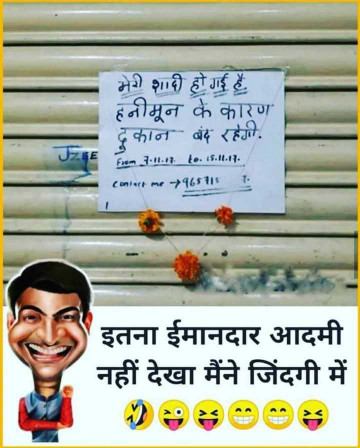 मेरी शादी हो गई है
हनीमून के कारण
दुकान बंद रहेगी.
From 7.11.17. to. 15.11.17.
Contact me → 965715 7.
इतना ईमानदार आदमी
नहीं देखा मैंने जिंदगी में